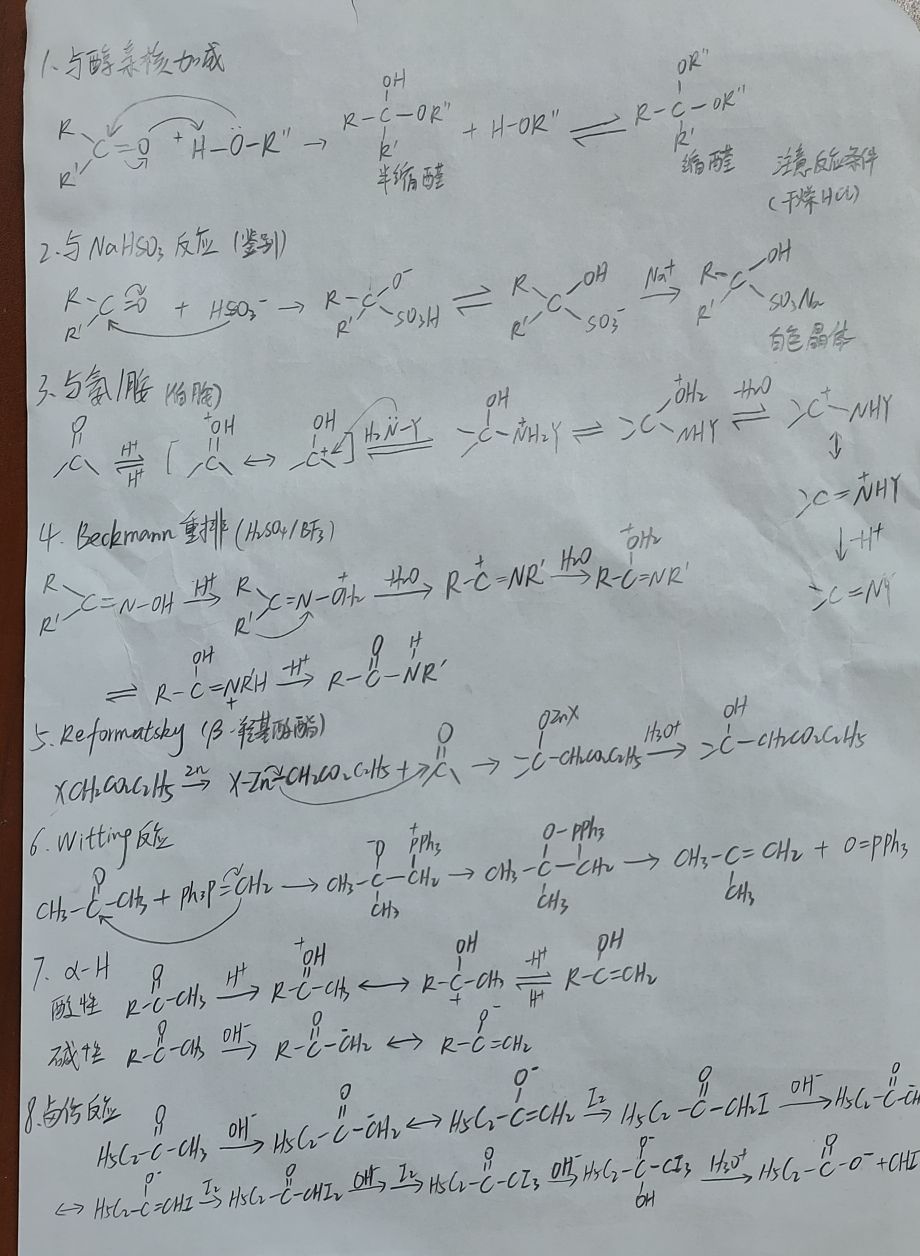 1. 与醇亲核加成
R R' C=O + H-Ö-R" → R-C(OH)(R')-OR" + H-OR" ⇌ R-C(OR")(R')-OR"
半缩醛 缩醛 注意反应条件
(干燥HCl)
2. 与NaHSO3反应 (鉴别)
R R' C=O + HSO3⁻ → R R' C O⁻ SO3H ⇌ R R' C OH SO3⁻ Na⁺→ R R' C OH SO3Na
白色晶体
3. 与氨/胺 (伯胺)
O=C H⁺⇌H⁺ [ ⁺OH=C ↔ OH-C⁺ ] H2N̈-Y⇌ C(OH)-N⁺H2Y ⇌ C(⁺OH2)NHY -H2O⇌ C⁺-NHY
↕
C=N⁺HY
↓-H⁺
C=NY
4. Beckmann重排 (H2SO4/BF3)
R R' C=N-OH H⁺→ R R' C=N-O⁺H2 -H2O→ R-C⁺=NR' H2O→ R-C(⁺OH2)=NR'
⇌ R-C(OH)=N⁺R'H -H⁺→ R-C(=O)-N(H)R'
5. Reformatsky (β-羟基酸酯)
XCH2CO2C2H5 Zn→ X-Zn-CH2CO2C2H5 + O=C → C(OZnX)-CH2CO2C2H5 H3O⁺→ C(OH)-CH2CO2C2H5
6. Witting反应
CH3-C(=O)-CH3 + Ph3P=CH2 → CH3-C(⁻O)(CH3)-CH2(⁺PPh3) → CH3-C(O-PPh3)(CH3)-CH2 → CH3-C(CH3)=CH2 + O=PPh3
7. α-H
酸性 R-C(=O)-CH3 H⁺→ R-C(=⁺OH)-CH3 ↔ R-C⁺(OH)-CH3 -H⁺⇌H⁺ R-C(OH)=CH2
碱性 R-C(=O)-CH3 OH⁻→ R-C(=O)-C⁻H2 ↔ R-C(O⁻)=CH2
8. 卤仿反应
H5C2-C(=O)-CH3 OH⁻→ H5C2-C(=O)-C⁻H2 ↔ H5C2-C(O⁻)=CH2 I2→ H5C2-C(=O)-CH2I OH⁻→ H5C2-C(=O)-C⁻H
↔ H5C2-C(O⁻)=CHI I2→ H5C2-C(=O)-CHI2 OH⁻→ I2→ H5C2-C(=O)-CI3 OH⁻→ H5C2-C(O⁻)(OH)-CI3 H3O⁺→ H5C2-C(=O)-O⁻ + CHI